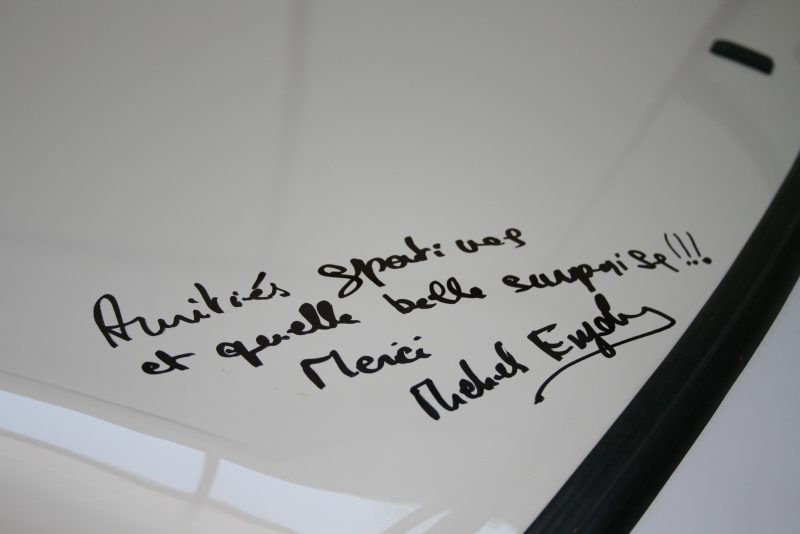 Amitiés sportives
et quelle belle surprise !!!
Merci
Michel